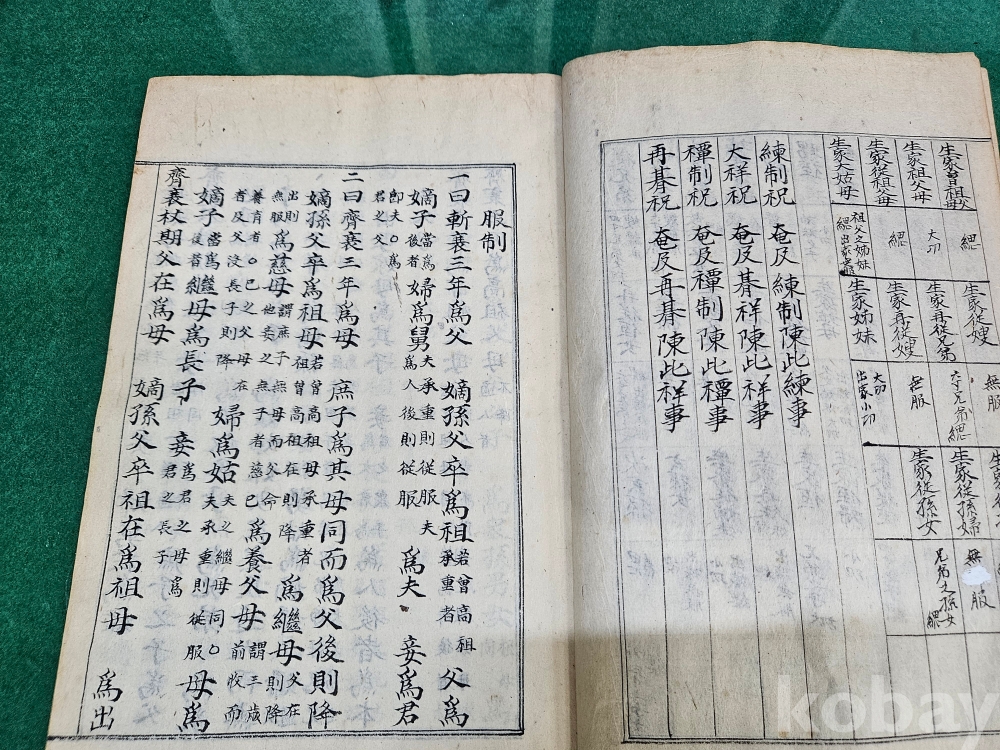 生家曾祖父母
生家祖父母
生家從祖父母
生家大姑母
緦
大功
緦
祖父之姊妹
緦出家無
生家從嫂
生家再從兄弟
生家再從嫂
生家姊妹
無服
六寸兄弟緦
無服
大功
出家小功
生家
生家從孫婦
生家從孫女
無服
兄弟之孫女
緦
練制祝 奄及練制陳此練事
大祥祝 奄及朞祥陳此祥事
禫制祝 奄及禫制陳此禫事
再朞祝 奄及再朞陳此祥事
服制
一曰斬衰三年爲父 嫡孫父卒爲祖若曾高祖承重者 父爲
嫡子當爲後者 婦爲舅夫承重則從服夫爲人後則從服 爲夫 妾爲君
卽夫○爲君之父
二曰齊衰三年爲母 庶子爲其母同而爲父後則降
嫡孫父卒爲祖母若曾高祖母承重者祖在則降 爲繼母父在則降
出則無服爲慈母謂庶子無母而父命他妾之無子者慈己 爲養父母謂三歲前收而
養育者○己之父母在者及父沒長子則降 婦爲姑夫承重則從服夫之繼母同○ 母爲
嫡子當爲後者繼母爲長子 妾爲君之母爲君之長子
齊衰杖期父在爲母 嫡孫父卒祖在爲祖母 爲出
kobay